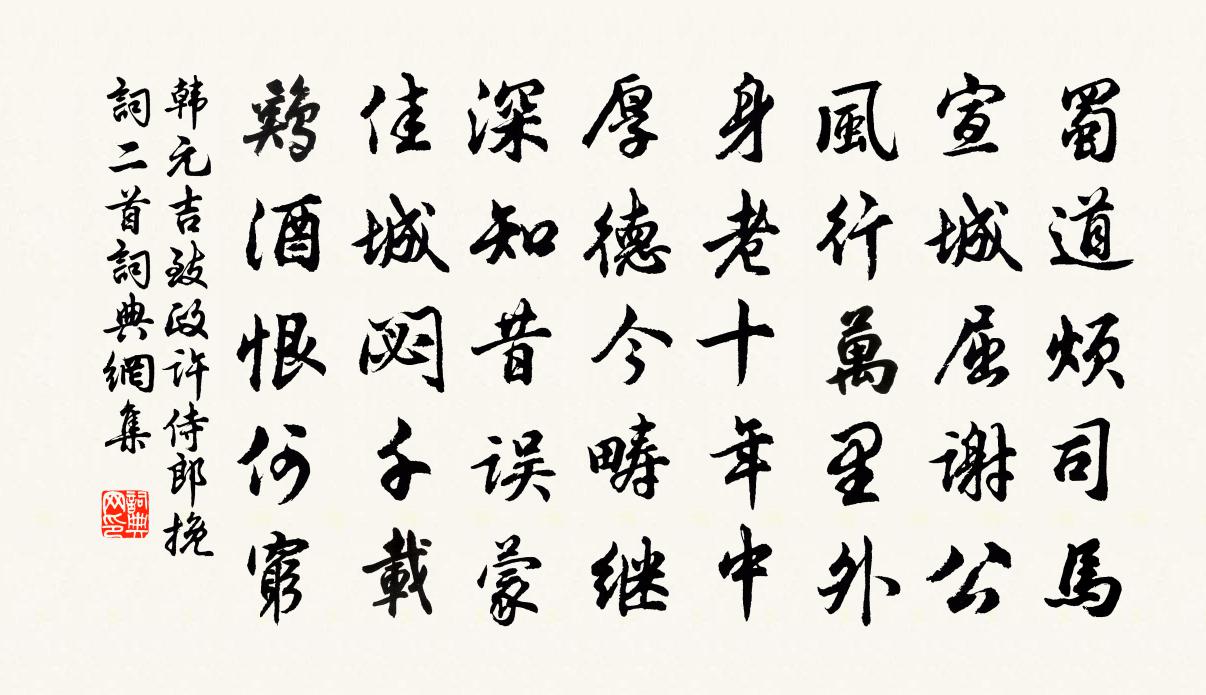 蜀道烦司馬
宣城屈謝公
風行萬里外
身老十年中
厚德今畴继
深知昔误蒙
佳城閟千載
鷄酒恨何窮
韩元吉致政许侍郎挽
詞二首詞典網集
詞典网印